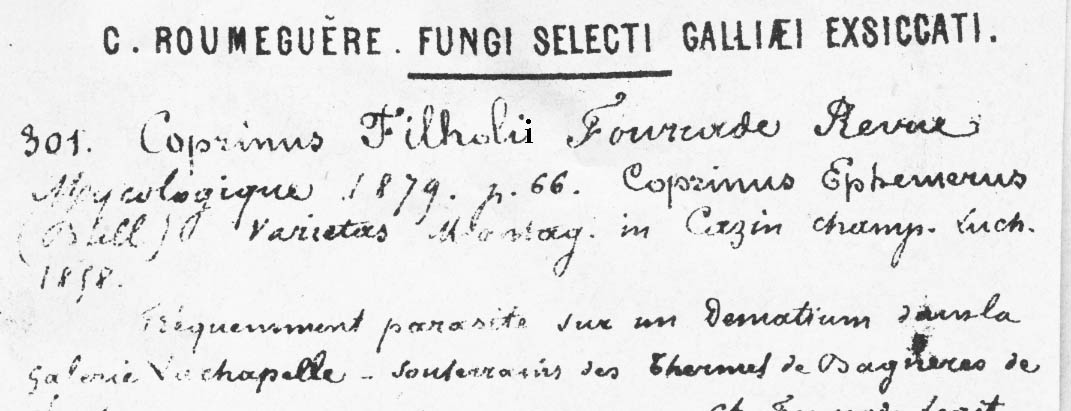 C. ROUMEGUĔRE. FUNGI SELECTI GALLIÆI EXSICCATI.
301. Coprinus Filholii Fourcade Revue
Mycologique 1879. p. 66. Coprinus Ephemerus
(Bull) Varietas Montag. in Cazin champ. Luch.
1858.
Fréquemment parasite sur un Dematium dans la
Galerie Lachapelle - souterrains des Thermes de Bagnères de